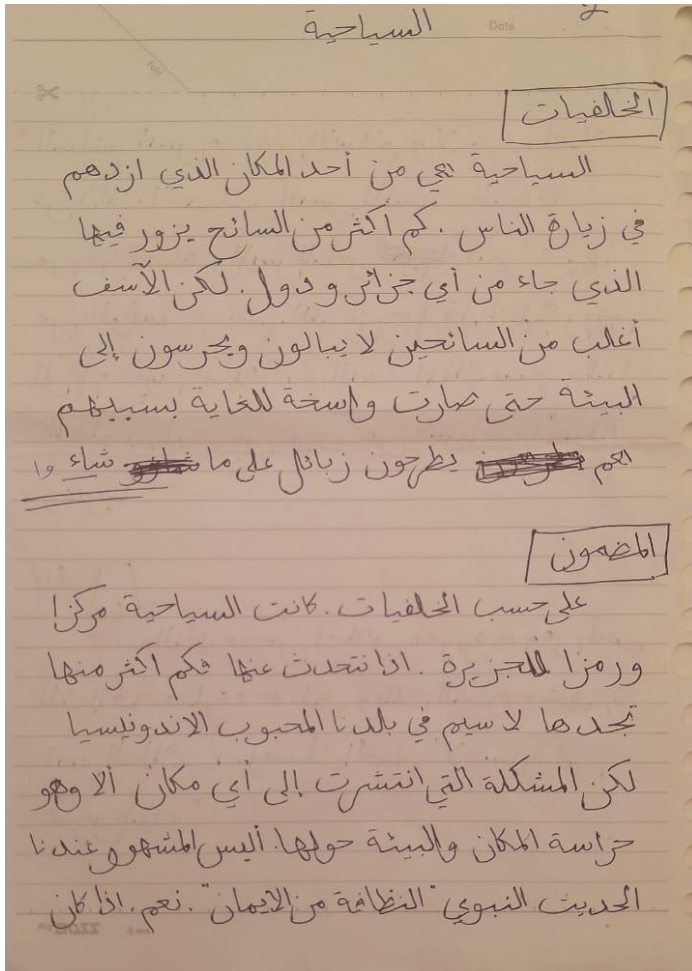 السياحية
Date
الخلفيات
السياحية هي من أحد المكان الذي ازدهم
في زيارة الناس . كم اكثر من السائح يزور فيها
الذي جاء من أي جزائر و دول . لكن الآسف
أغلب من السائحين لا يبالون ويحرسون إلى
البيئة حتى صارت واسخة للغاية بسببهم
هم يطرحون زبائل على ما شاءوا
المضمون
على حسب الخلفيات . كانت السياحية مركزا
ورمزا للجزيرة . اذا نتحدث عنها فكم اكثر منها
تجدها لا سيم في بلدنا المحبوب الاندونيسيا
لكن المشكلة التي انتشرت إلى أي مكان ألا وهو
حراسة المكان والبيئة حولها. أليس المشهور عندنا
الحديث النبوي "النظافة من الايمان" . نعم . اذا كان